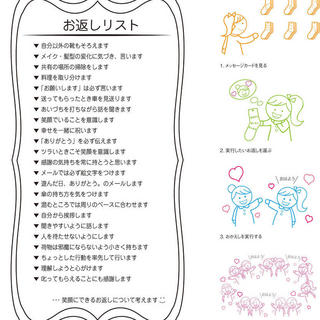 お返しリスト
▼ 自分以外の靴もそろえます
▼ メイク・髪型の変化に気づき、言います
▼ 共有の場所の掃除をします
▼ 料理を取り分けます
▼ 「お願いします」は必ず言います
▼ 送ってもらったとき車を見送ります
▼ あいづちを打ちながら話を聞きます
▼ 笑顔でいることを意識します
▼ 幸せを一緒に祝います
▼ 「ありがとう」を必ず伝えます
▼ ツラいときこそ笑顔を意識します
▼ 感謝の気持ちを常に持とうと思います
▼ メールでは必ず絵文字をつけます
▼ 遊んだ日、ありがとう。のメールします
▼ 傘の持ち方を気をつけます
▼ 進むところでは周りのペースに合わせます
▼ 自分から挨拶します
▼ 聞きやすいように話します
▼ 人を待たせないようにします
▼ 荷物は邪魔にならないよう小さく持ちます
▼ ちょっとした行動を率先して行います
▼ 理解しようと心がけます
▼ 叱ってもらえることにも感謝します
… 笑顔にできるお返しについて考えます
1. メッセージカードを見る
2. 実行したいお返しを選ぶ
おはよう
3. おかえしを実行する